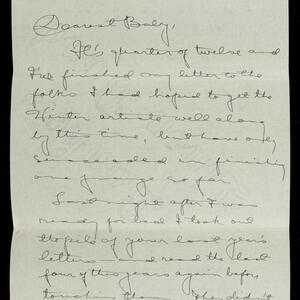 Dearest Baby,
It's quarter of twelve and
I've finished my letter to the
folks I had hoped to get the
Winter article well along
by this time, but have only
succeeded in finishing
one page so far.
Last night after I was
ready for bed I took out
the pile of your last year's
letters — and read the last
four of this years again before
touching them. They didn't